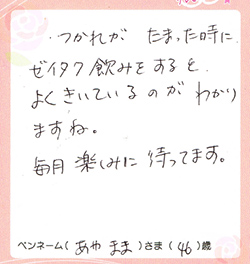 ・つかれが たまった時に
ゼイタク飲みをすると
よくきいているのが わかり
ますね。
毎月 楽しみに 待ってます。
ペンネーム( あや まま )さま ( 46 )歳